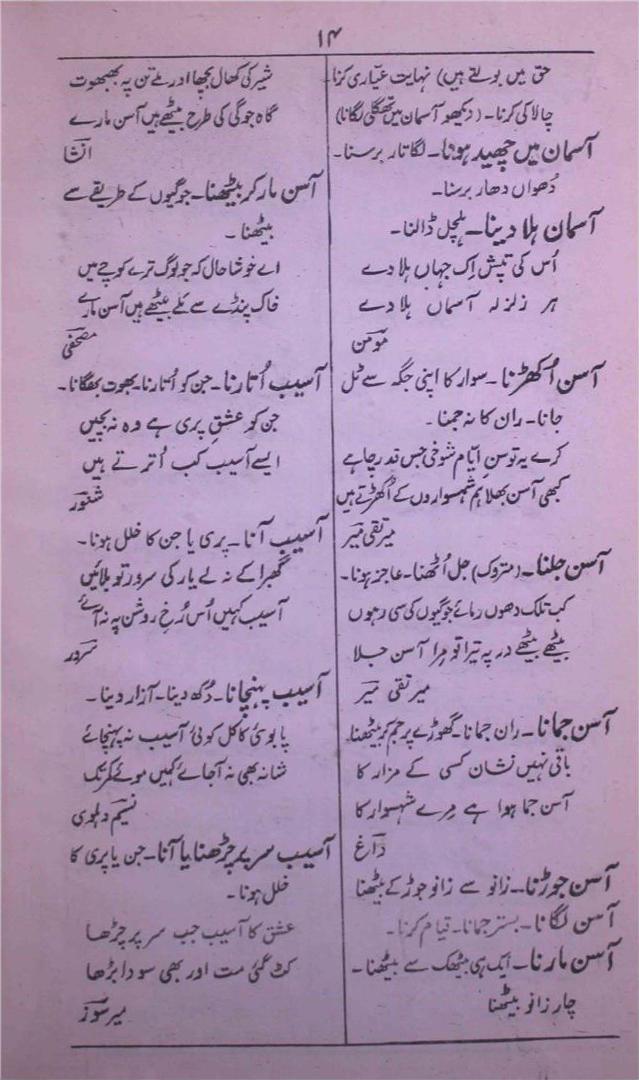 ۱۴
حق میں بولتے ہیں) نہایت عیّاری کرنا
چالاکی کرنا۔ (دیکھو آسمان میں تھگلی لگانا)
آسمان میں چھید ہونا۔ لگاتار برسنا۔
دُھواں دھار برسنا۔
آسمان ہلا دینا۔ ہلچل ڈالنا۔
اُس کی تپش اِک جہاں ہلا دے
ہر زلزلہ آسماں ہلا دے
مومن
آسن اُکھڑنا۔ سوار کا اپنی جگہ سے ٹل
جانا۔ ران کا نہ جمنا۔
کرے یہ توسنِ ایّام شوخی جس قدر چاہے
کبھی آسن بھلا ہم شہسواروں کے اُکھڑتے ہیں
میر تقی میر
آسن جلنا۔ (متروک) جل اُٹھنا۔ عاجز ہونا۔
کب تلک دھوں رمائے جوگیوں کی سی رہوں
بیٹھے بیٹھے در پہ تیرا تو مرا آسن جلا
میر تقی میر
آسن جمانا۔ ران جمانا۔ گھوڑے پر جم کر بیٹھنا۔
باقی نہیں نشان کسی کے مزار کا
آسن جما ہوا ہے مِرے شہسوار کا
داغ
آسن جوڑنا۔ زانو سے زانو جوڑ کے بیٹھنا
آسن لگانا۔ بستر جمانا۔ قیام کرنا۔
آسن مارنا۔ ایک ہی بیٹھک سے بیٹھنا۔
چار زانو بیٹھنا
شیر کی کھال بچھا اور ملے تن پہ بھبھوت
گاہ جوگی کی طرح بیٹھے ہیں آسن مارے
انشا
آسن مار کر بیٹھنا۔ جوگیوں کے طریقے سے
بیٹھنا۔
اے خوشا حال کہ جو لوگ ترے کوچے میں
خاک پنڈے سے ملے بیٹھے ہیں آسن مارے
مصحفی
آسیب اُتارنا۔ جن کو اُتارنا۔ بھوت بھگانا۔
جن کو عشقِ پری ہے وہ نہ بچیں
ایسے آسیب کب اُترتے ہیں
شعور
آسیب آنا۔ پری یا جن کا خلل ہونا۔
گھبرا کے نہ لے یار کی سرور تو بلائیں
آسیب کہیں اُس رُخِ روشن پہ نہ آئے
سرور
آسیب پہنچانا۔ دُکھ دینا۔ آزار دینا۔
پا بوئی کاکل کوئی آسیب نہ پہنچائے
شانہ بھی نہ آجائے کہیں موئے کمر تک
نسیم دہلوی
آسیب سر پر چڑھنا یا آنا۔ جن یا پری کا
خلل ہونا۔
عشق کا آسیب جب سر پر چڑھا
کٹ گئی مت اور بھی سودا بڑھا
میر سوز